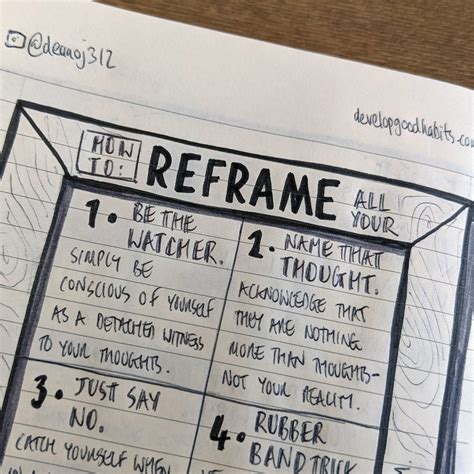 @deanoj312
developgoodhabits.co
HOW
TO:
REFRAME
ALL
YOUR
1. BE THE
WATCHER.
SIMPLY BE
CONSCIOUS OF YOURSELF
AS A DETACHED WITNESS
TO YOUR THOUGHTS.
2. NAME THAT
THOUGHT.
ACKNOWLEDGE THAT
THEY ARE NOTHING
MORE THAN THOUGHTS-
NOT YOUR REALITY.
3. JUST SAY
NO.
CATCH YOURSELF WHEN
4. RUBBER
BAND TRICK